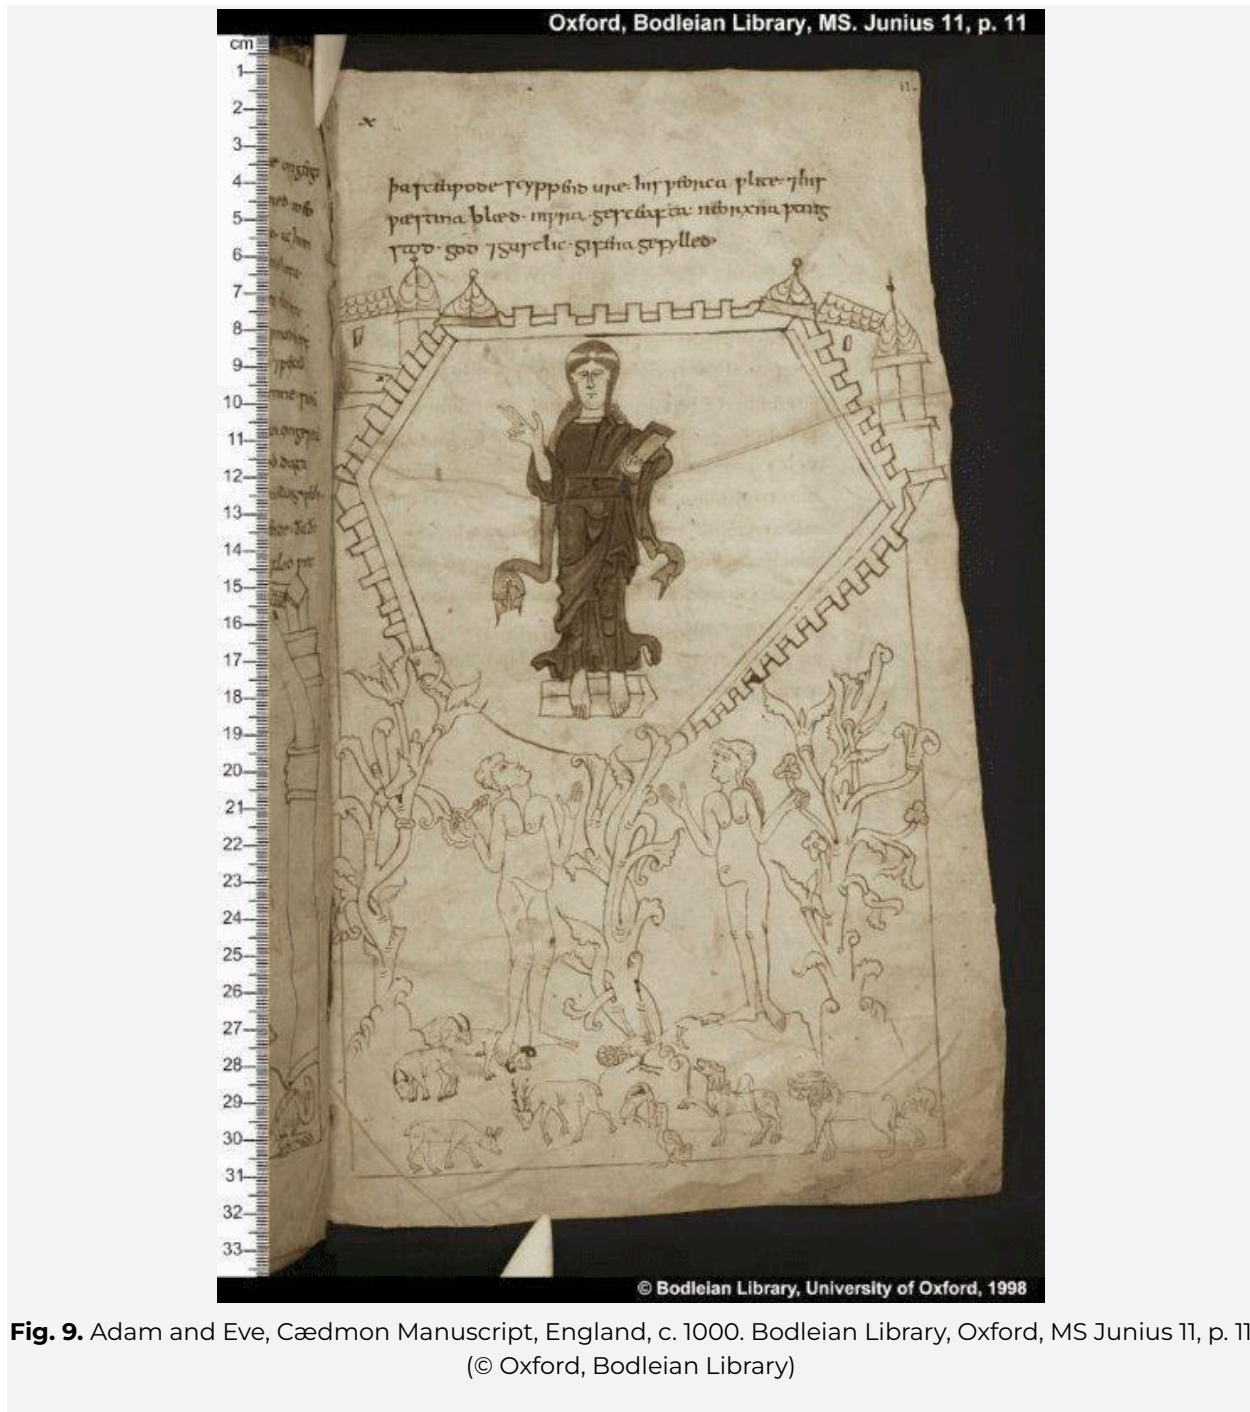 Oxford, Bodleian Library, MS. Junius 11, p. 11
cm
1
2
3
4
5
6
7
8
9
10
11
12
13
14
15
16
17
18
19
20
21
22
23
24
25
26
27
28
29
30
31
32
33
11.
x
þa sceaƿode scyppend ure· his ƿeorca ƿlite· ⁊ his
ƿæstma blæd· niƿra· gesceafta· neorxna ƿang
stod· god ⁊ gastlic· gifena gefylled·
© Bodleian Library, University of Oxford, 1998
Fig. 9. Adam and Eve, Cædmon Manuscript, England, c. 1000. Bodleian Library, Oxford, MS Junius 11, p. 11
(© Oxford, Bodleian Library)